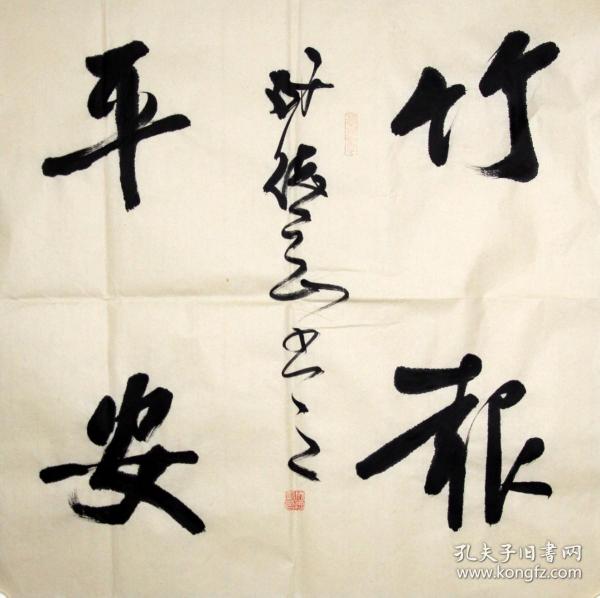 竹报
平安
书之
孔夫子旧书网
www.kongfz.com